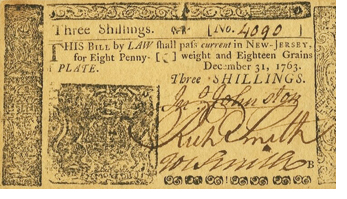 Three Shillings. [No. 4090]
THIS BILL by LAW shall pass current in NEW-JERSEY,
for Eight Penny-weight and Eighteen Grains
PLATE. December 31, 1763.
Three SHILLINGS.
Jno Johnston
Richd Smith
W Smith
B